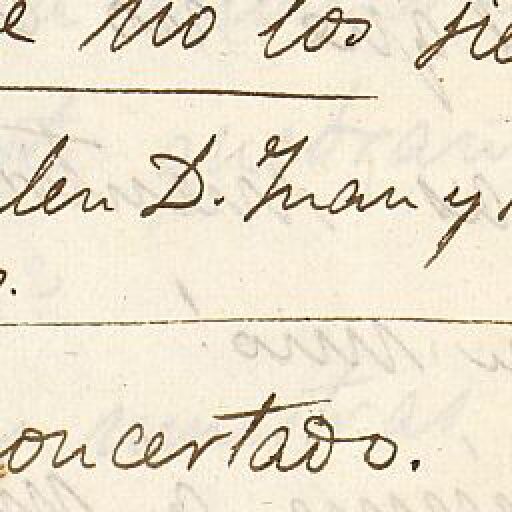 e no los sie
len D. Juan y
o.
oncertado.